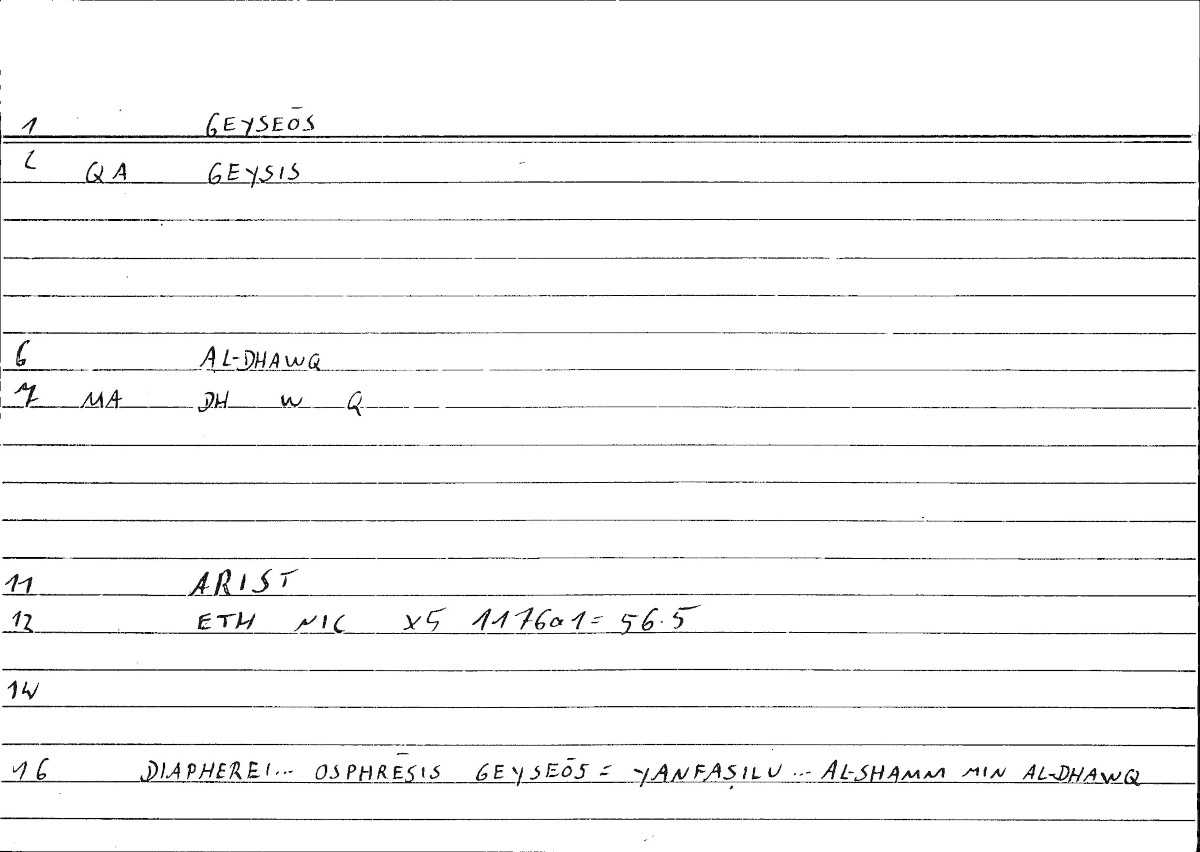 1 GEYSEŌS
2 QA GEYSIS
6 AL-DHAWQ
7 MA DH W Q
11 ARIST
12 ETH NIC X5 1176a1= 56.5
14
16 DIAPHEREI... OSPHRĒSIS GEYSEŌS = YANFAṢILU... AL-SHAMM MIN AL-DHAWQ